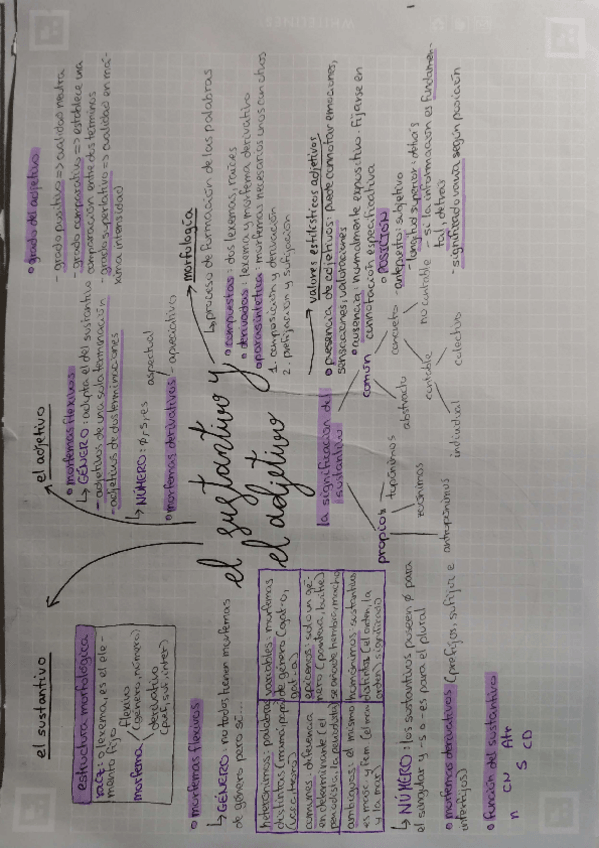 el sustantivo y
el adjetivo
el sustantivo
estructura morfológica
raíz: o lexema, es el ele-
mento fijo
morfema
flexivo
(género, número)
derivativo
(pref, suf, inter)
• morfemas flexivos
↳ GÉNERO: no todos tienen morfemas
de género para sí...
heterónimos: palabras
distintas (mamá, papá)
(vaca, toro)
variables: morfemas
de género (gat-o,
gat-a)
comunes: diferencia
en determinante (el
periodista, la periodista)
epicenos: solo un gé-
nero (pantera, buitre)
se añade hembra, macho
ambiguos: el mismo
es masc y fem (el mar
y la mar)
homónimos: sustantivos
distintos (el orden, la
orden) significado
↳ NÚMERO: los sustantivos poseen ∅ para
el singular y -s o -es para el plural
• morfemas derivativos (prefijos, sufijos e
interfijos)
• función del sustantivo
n CN Atr
S CD
el adjetivo
• morfemas flexivos
↳ GÉNERO: adopta el del sustantivo
- adjetivos de una sola terminación
- adjetivos de dos terminaciones
↳ NÚMERO: ∅, s, es
• morfemas derivativos
aspectual
- apreciativos
• grado del adjetivo
- grado positivo => cualidad neutra
- grado comparativo => establece una
comparación entre dos términos
- grado superlativo => cualidad en má-
xima intensidad
morfología
↳ proceso de formación de las palabras
• compuestas: dos lexemas, raíces
• derivadas: lexema y morfema derivativo
• parasintética: morfemas necesarios unos con otros
1. composición y derivación
2. prefijación y sufijación
valores estilísticos adjetivos
• presencia de adjetivos: puede connotar emociones,
sensaciones, valoraciones
• ausencia: normalmente expositivo. Fijarse en
connotación especificativa
• POSICIÓN
- antepuesto: subjetivo
- longitud superior: detrás
- si la información es fundamen-
tal, detrás
- significado varía según posición
la significación del
sustantivo
propios
topónimos
antropónimos
común
abstracto
concreto
contable
no contable
individual
colectivo